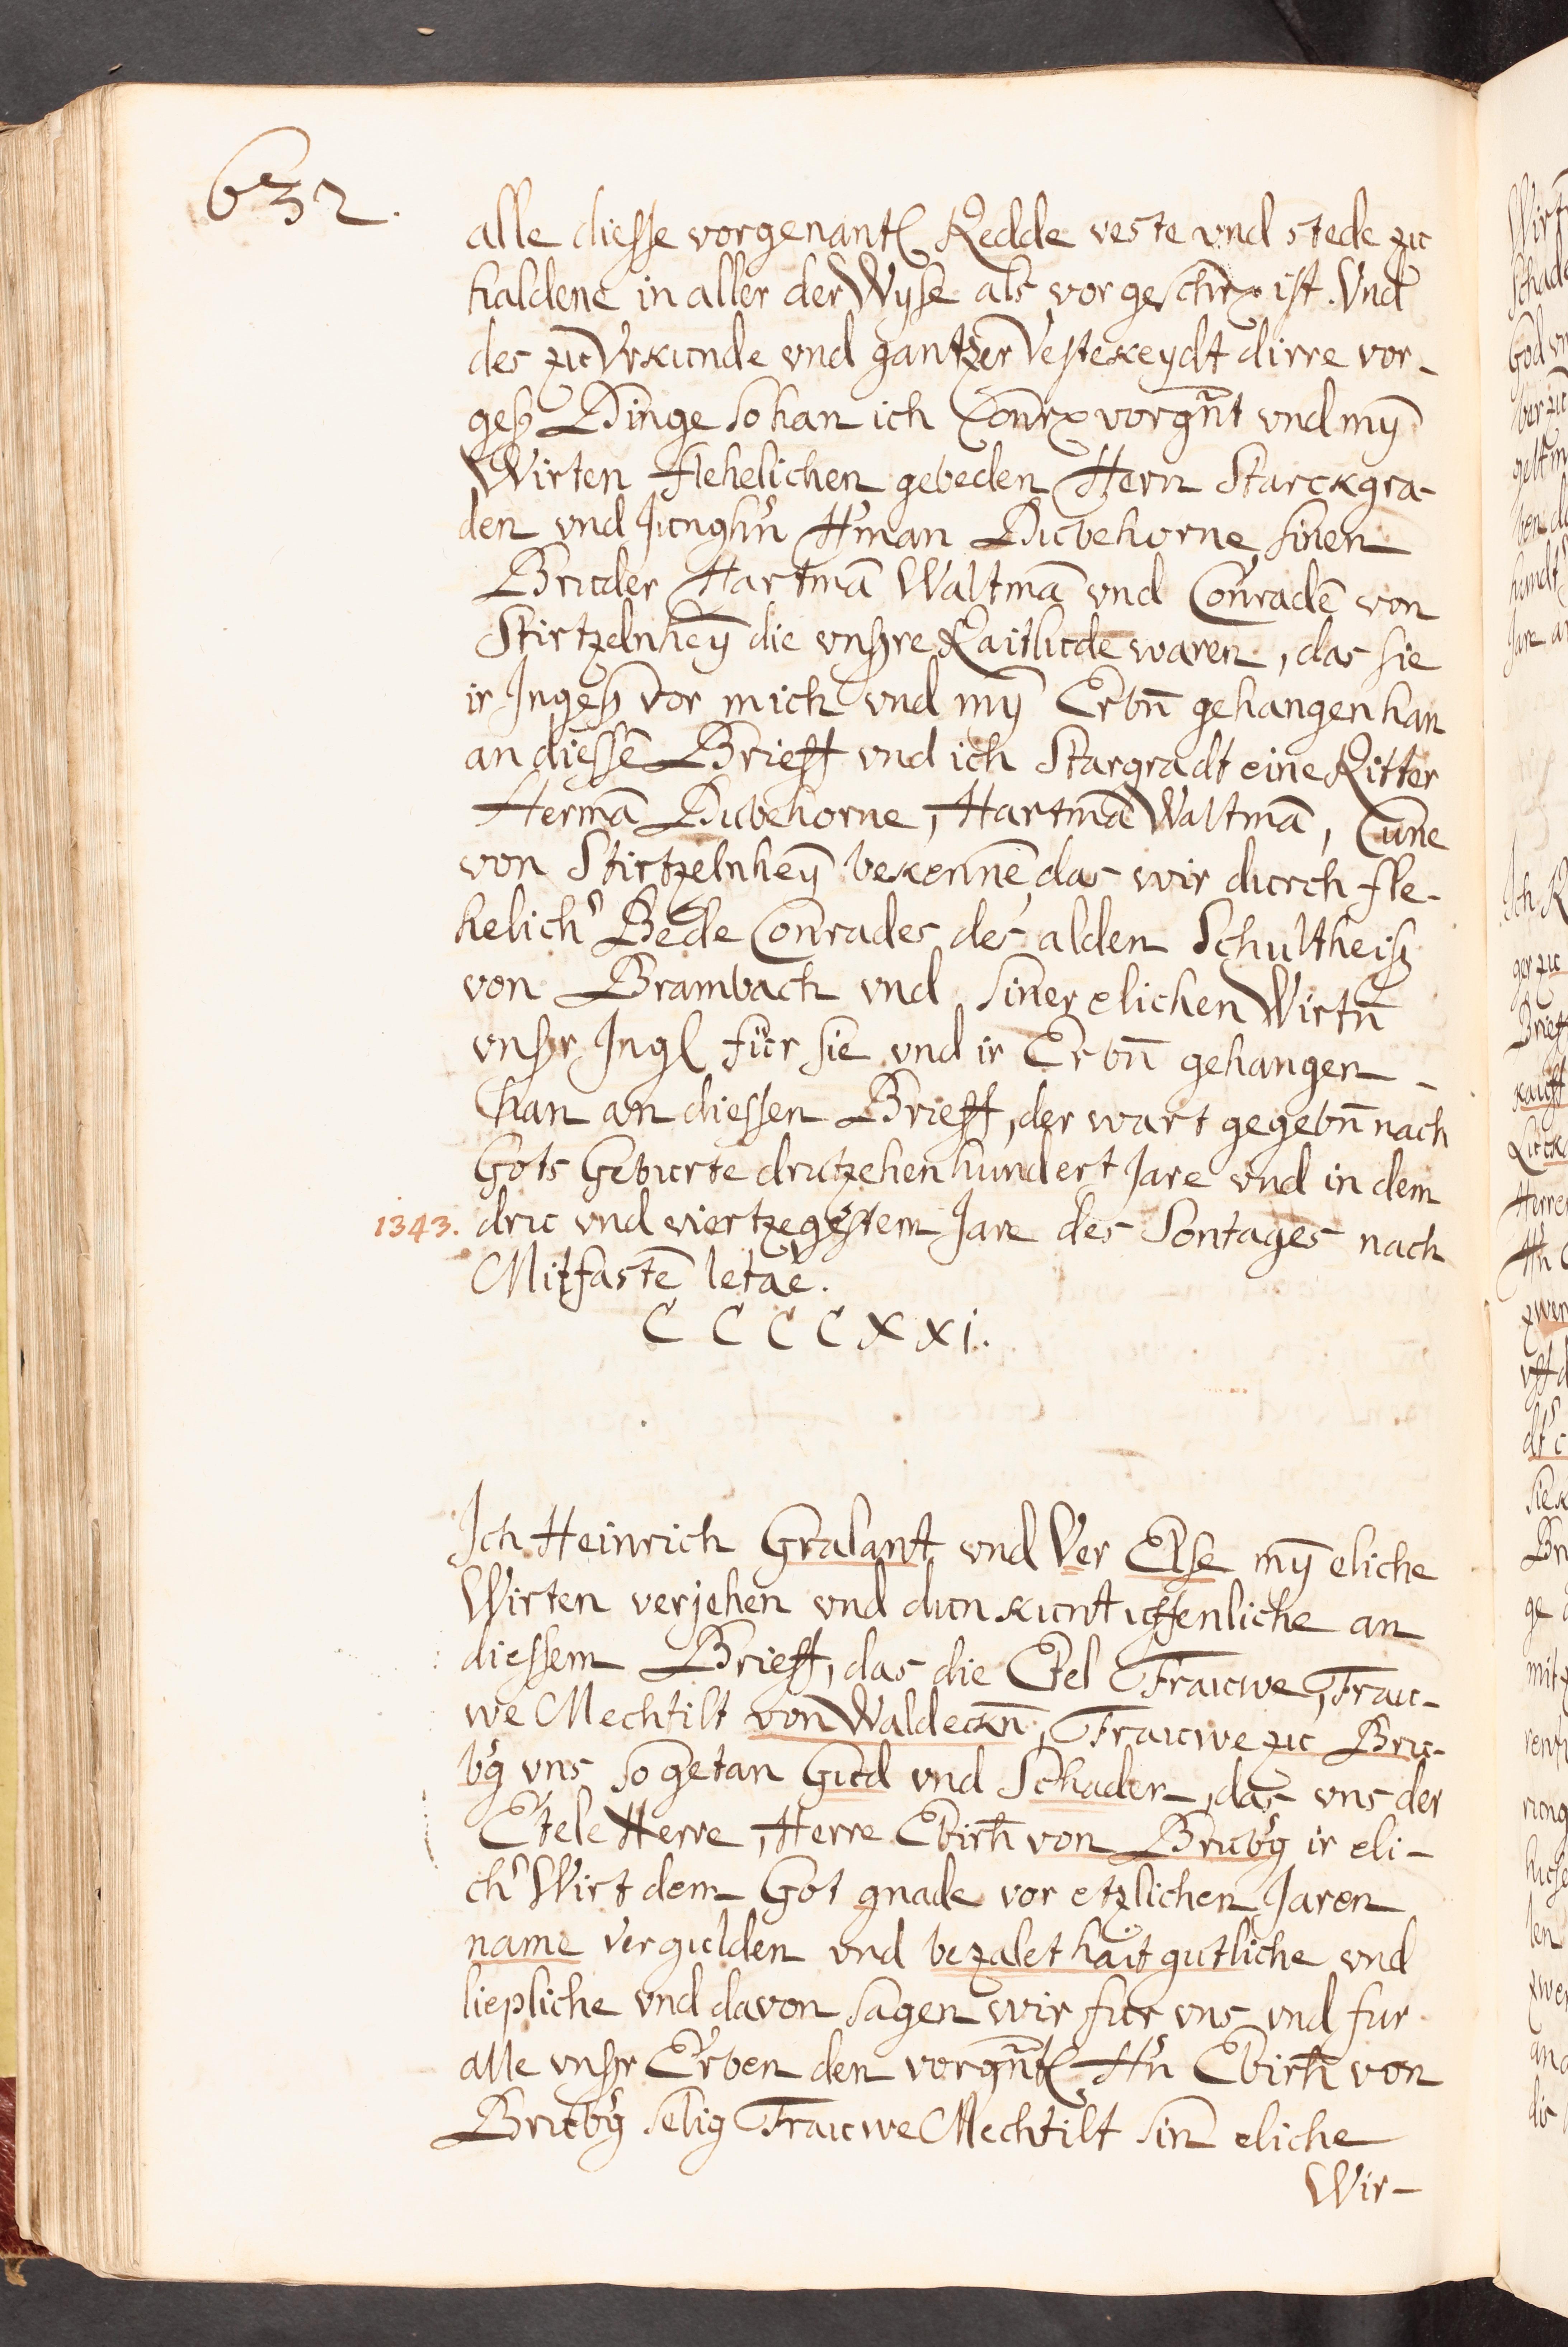 632.
alle diesse vorgenantꝭ Redde veste vnd stede zu
haldene in aller der Wyse als vor geschrꝛ ist. Vnd
des zu Vrkunde vnd gantzer Vestekeydt dirre vor-
geß Dinge so han ich Conrꝛ vorgn̄t vnd mȳ
Wirten flehelichen gebeden Hern Starckgra-
den vnd Jungh'n H'man Dubehorne sinen
Bruder Hartmā Waltmā vnd Conradē von
Stirtzelnheȳ die vnßre Raitlude waren, das sie
ir Ingeß vor mich vnd mȳ Erbn̄ gehangen han
an diessē Brieff vnd ich Stargradt eine Ritter
Hermā Dubehorne, Hartmā Waltmā, Cūne
von Stirtzelnheȳ bekennē das wir durch fle-
helich' Bede Conrades des alden Schultheiß
von Brambach vnd siner elichen Wirtn̄
vnßr Ingꝭ für sie vnd ir Erbn̄ gehangen
han an diessen Brieff, der wart gegebn̄ nach
Gots Geburte drutzehenhundert Jare vnd in dem
1343. dru vnd viertzegestem Jare des Sontages nach
Mitfastē letae.
C C C C X X I.
Ich Heinrich Gralant vnd Ver Else mȳ eliche
Wirten verjehen vnd dun kunt uffenliche an
diessem Brieff, das die Etel Frauwe, Frau-
we Mechtilt von Waldeckn̄, Frauwe zu Bru-
b'g vns so getan Gud vnd Schader, das vns der
Etele Herre, Herre Ebirh̄ von Brub'g ir eli-
ch' Wirt dem Got gnade vor etzlichen Jaren
name vergulden vnd bezalet hait gutliche vnd
liepliche vnd davon sagen wir fur vns vnd fur
alle vnßr Erben den vorgn̄tꝭ H'n Ebirh̄ von
Brub'g selig Frauwe Mechtilt sin eliche
Wir-